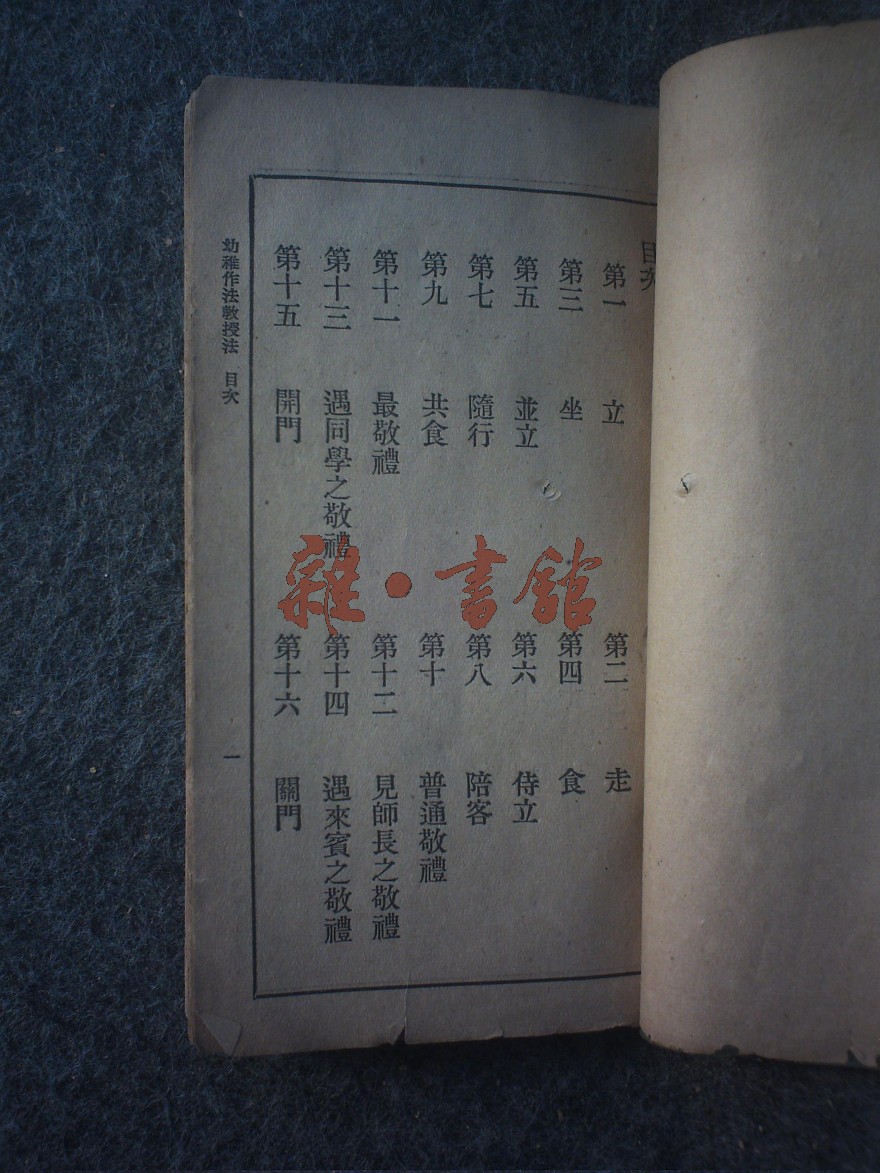 目次
第一 立 第二 走
第三 坐 第四 食
第五 並立 第六 侍立
第七 隨行 第八 陪客
第九 共食 第十 普通敬禮
第十一 最敬禮 第十二 見師長之敬禮
第十三 遇同學之敬禮 第十四 遇來賓之敬禮
第十五 開門 第十六 關門
幼稚作法教授法 目次 一
雜·書館